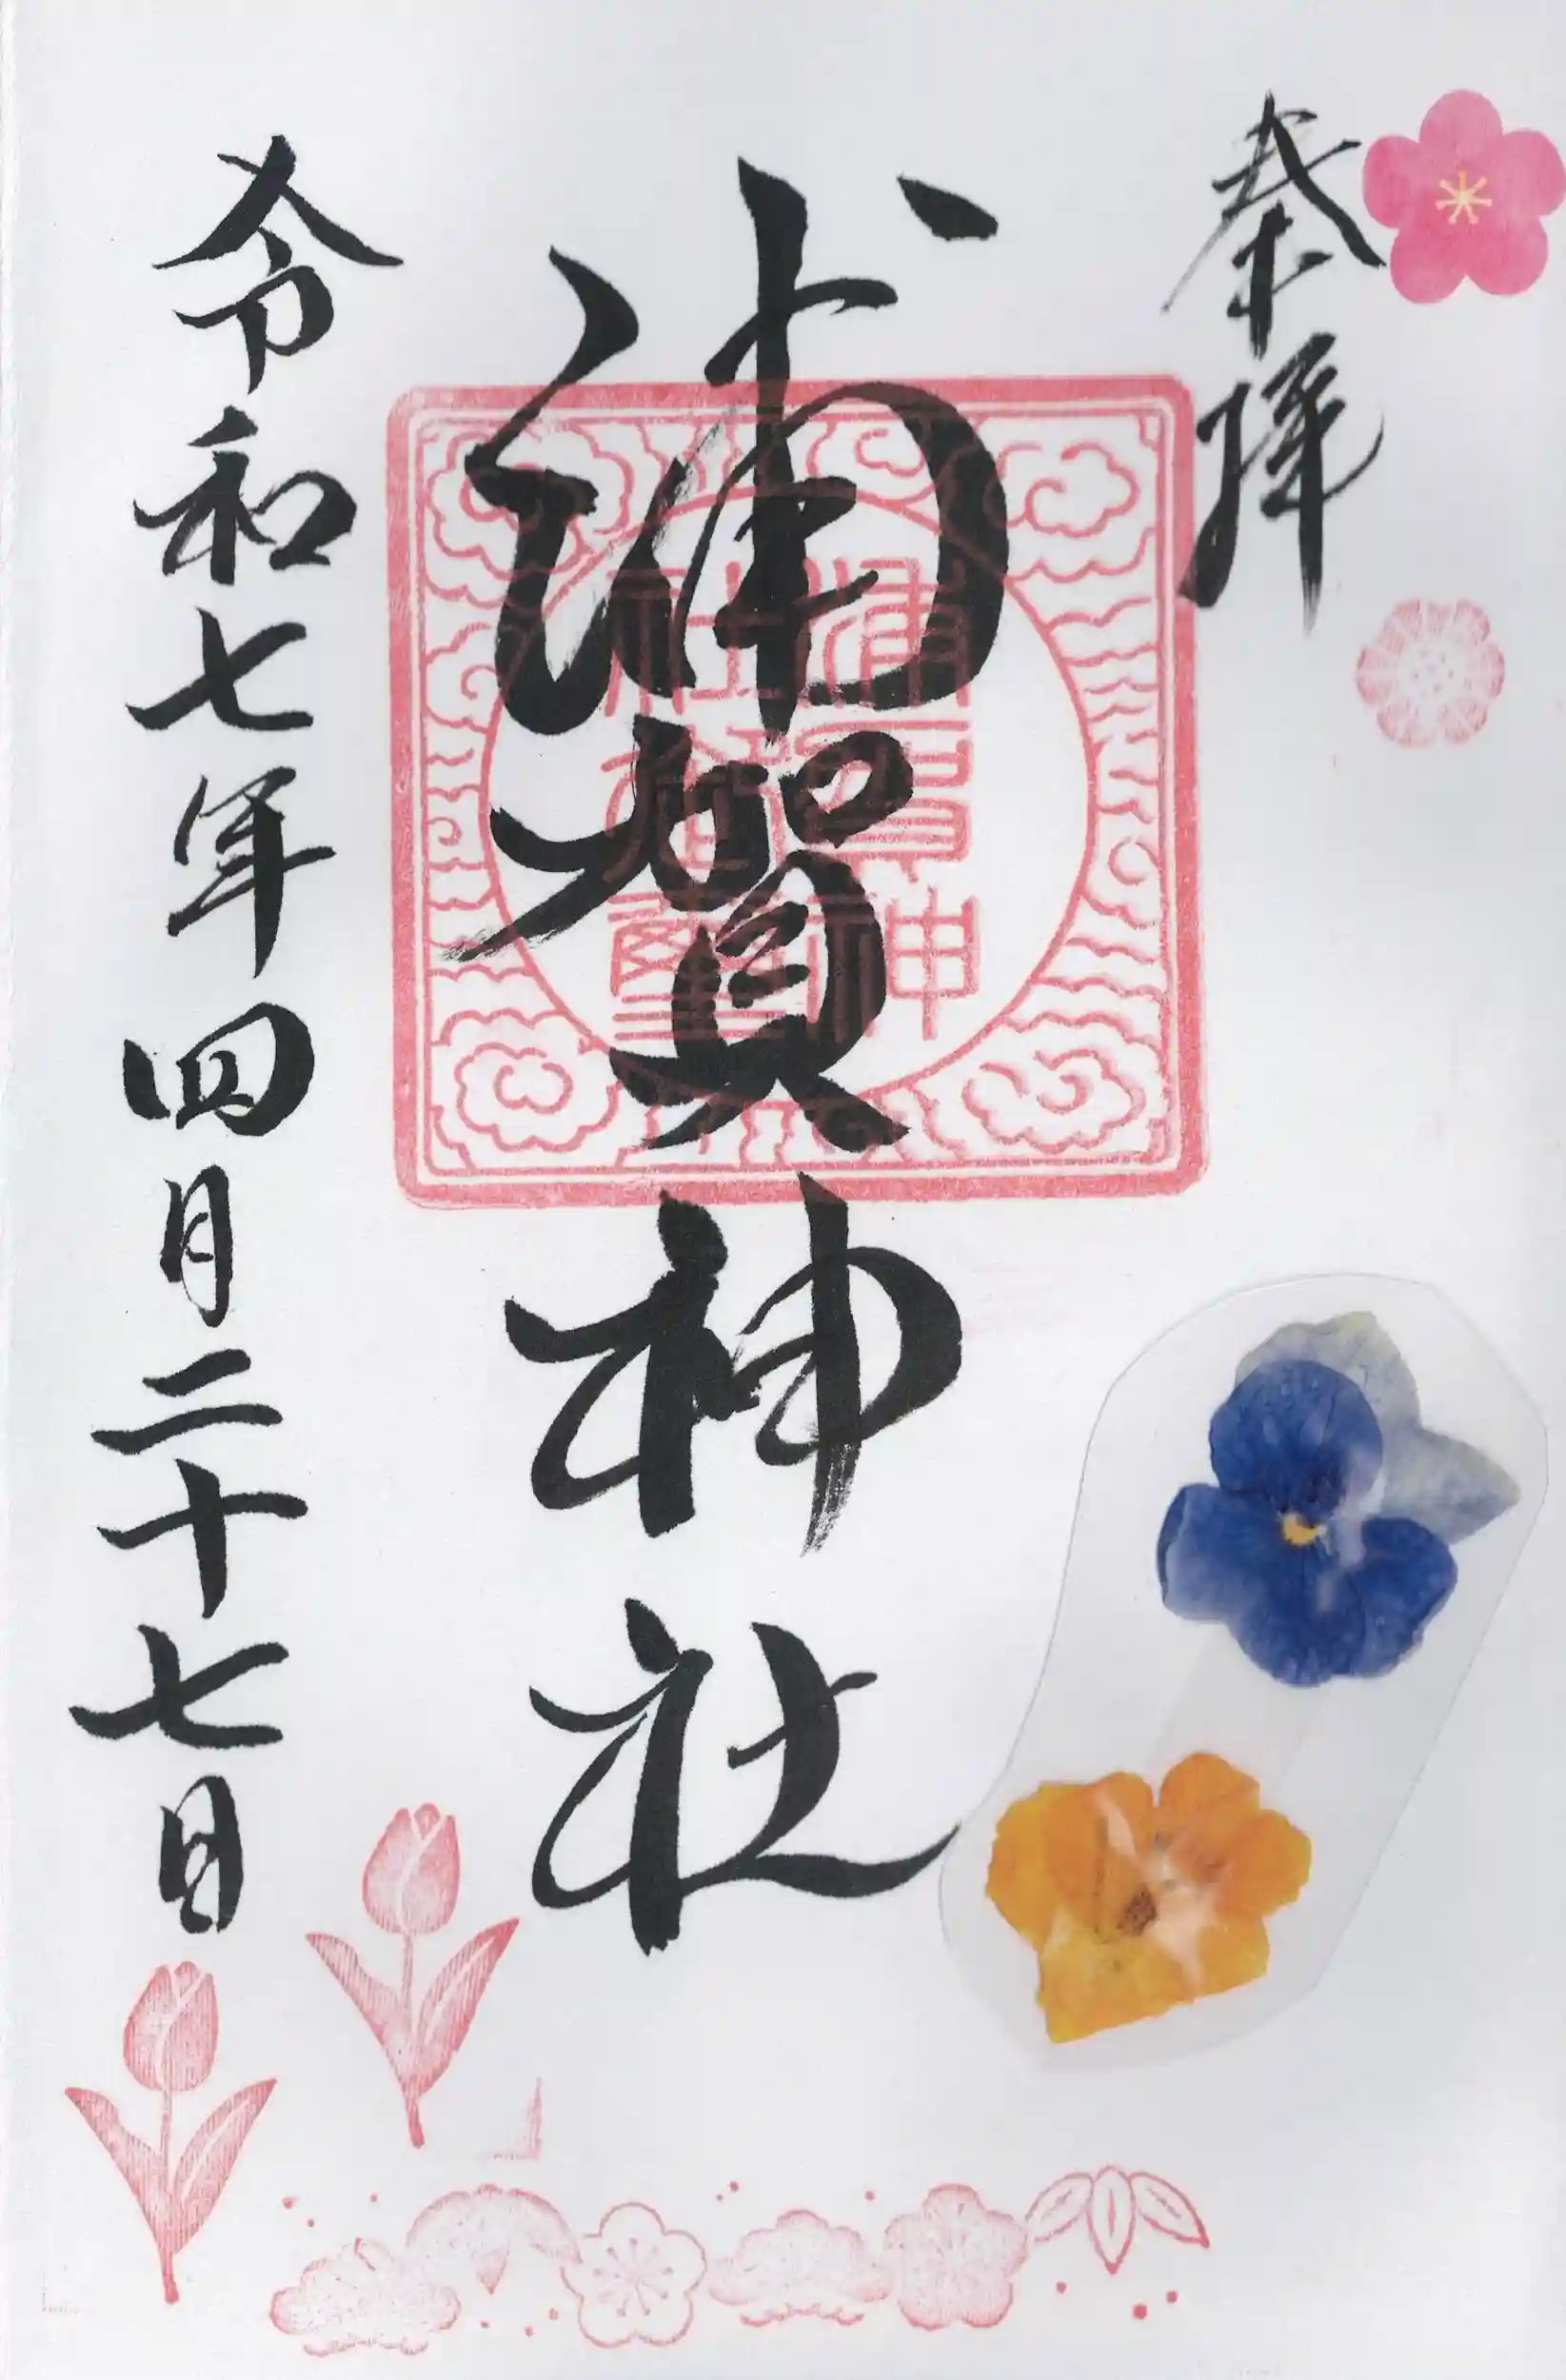 奉拝
浦賀神社
浦賀神
社之璽
令和七年四月二十七日